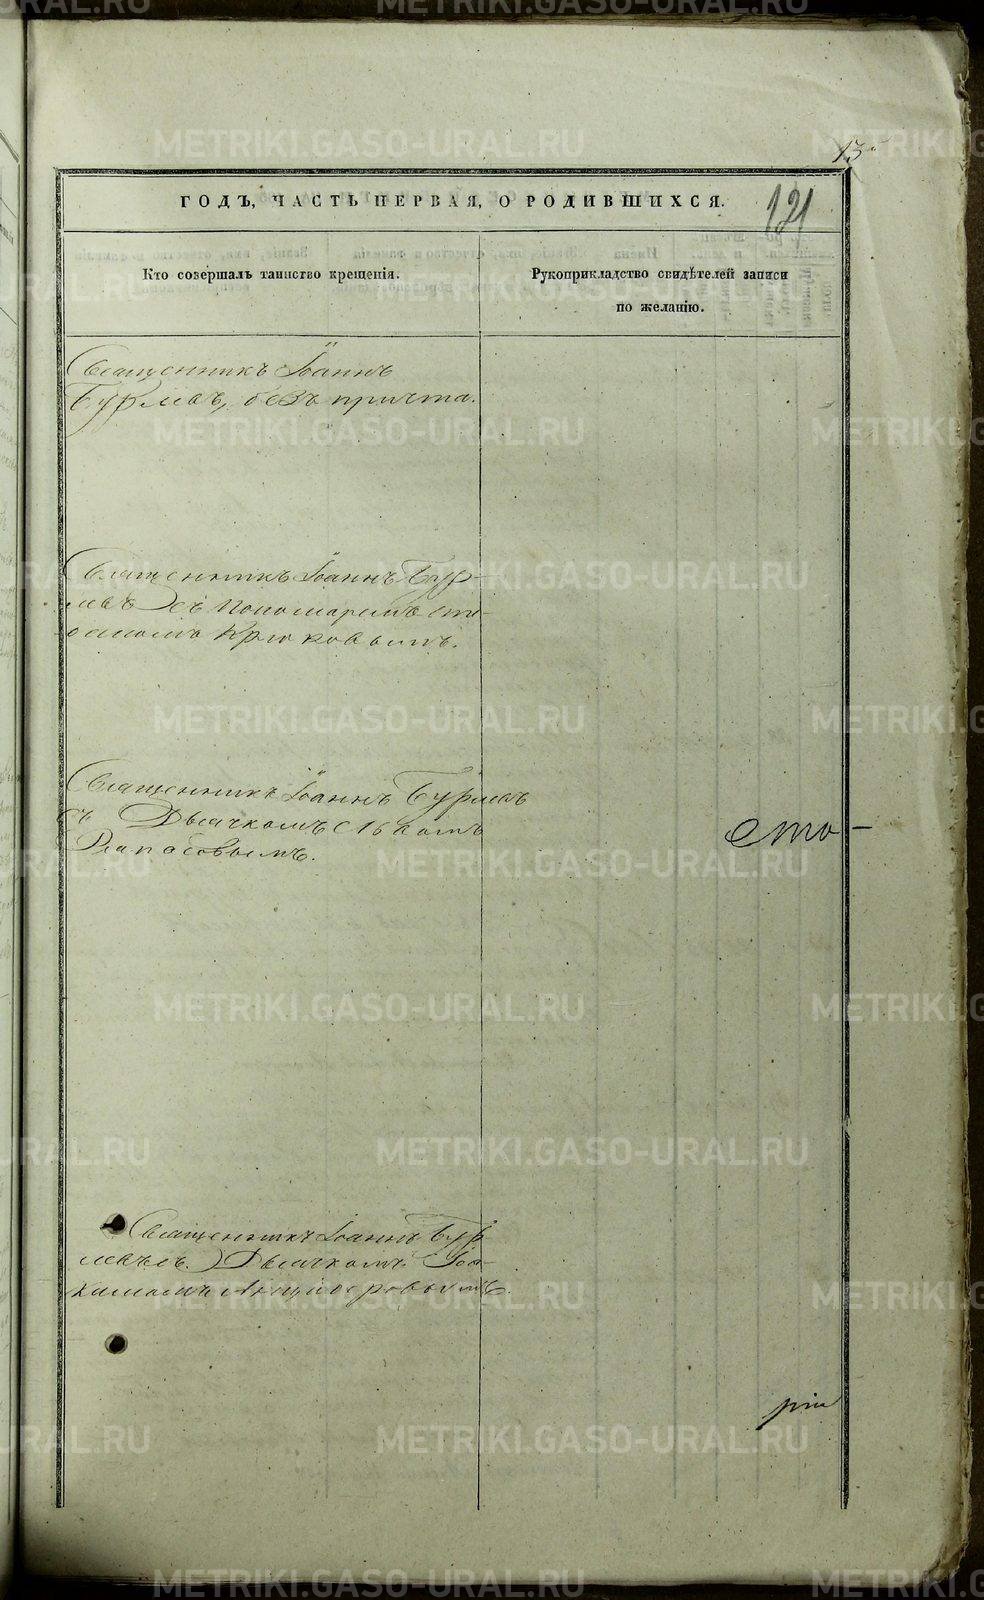 METRIKI.GASO-URAL.RU
13
121
ГОДЪ, ЧАСТЬ ПЕРВАЯ, О РОДИВШИХСЯ.
Кто совершалъ таинство крещенія.
Рукоприкладство свидѣтелей записи
по желанію.
Священникъ Іоаннъ
Бурмевъ, безъ причта.
Священникъ Іоаннъ Бур-
мевъ съ Пономаремъ
Крюковымъ.
Священникъ Іоаннъ Бурмевъ
съ Дьячкомъ
сто-
Священникъ Іоаннъ Бур
Дьячкомъ Іоа-
кимомъ
ріи